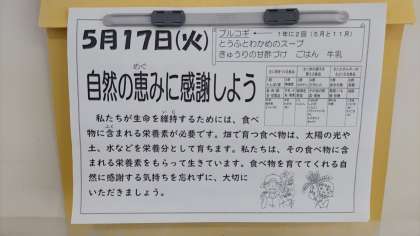 5月17日(火)
プルコギ・・・ 1年に2回(5月と11月)
とうふとわかめのスープ
きゅうりの甘酢づけ ごはん 牛乳
めぐ
自然の恵みに感謝しよう
い じ
私たちが生命を維持するためには、食べ
ふく
物に含まれる栄養素が必要です。畑で育つ食べ物は、太陽の光や
土、水などを栄養分として育ちます。私たちは、その食べ物に含
まれる栄養素をもらって生きています。食べ物を育ててくれる自
然に感謝する気持ちを忘れずに、大切に
いただきましょう。